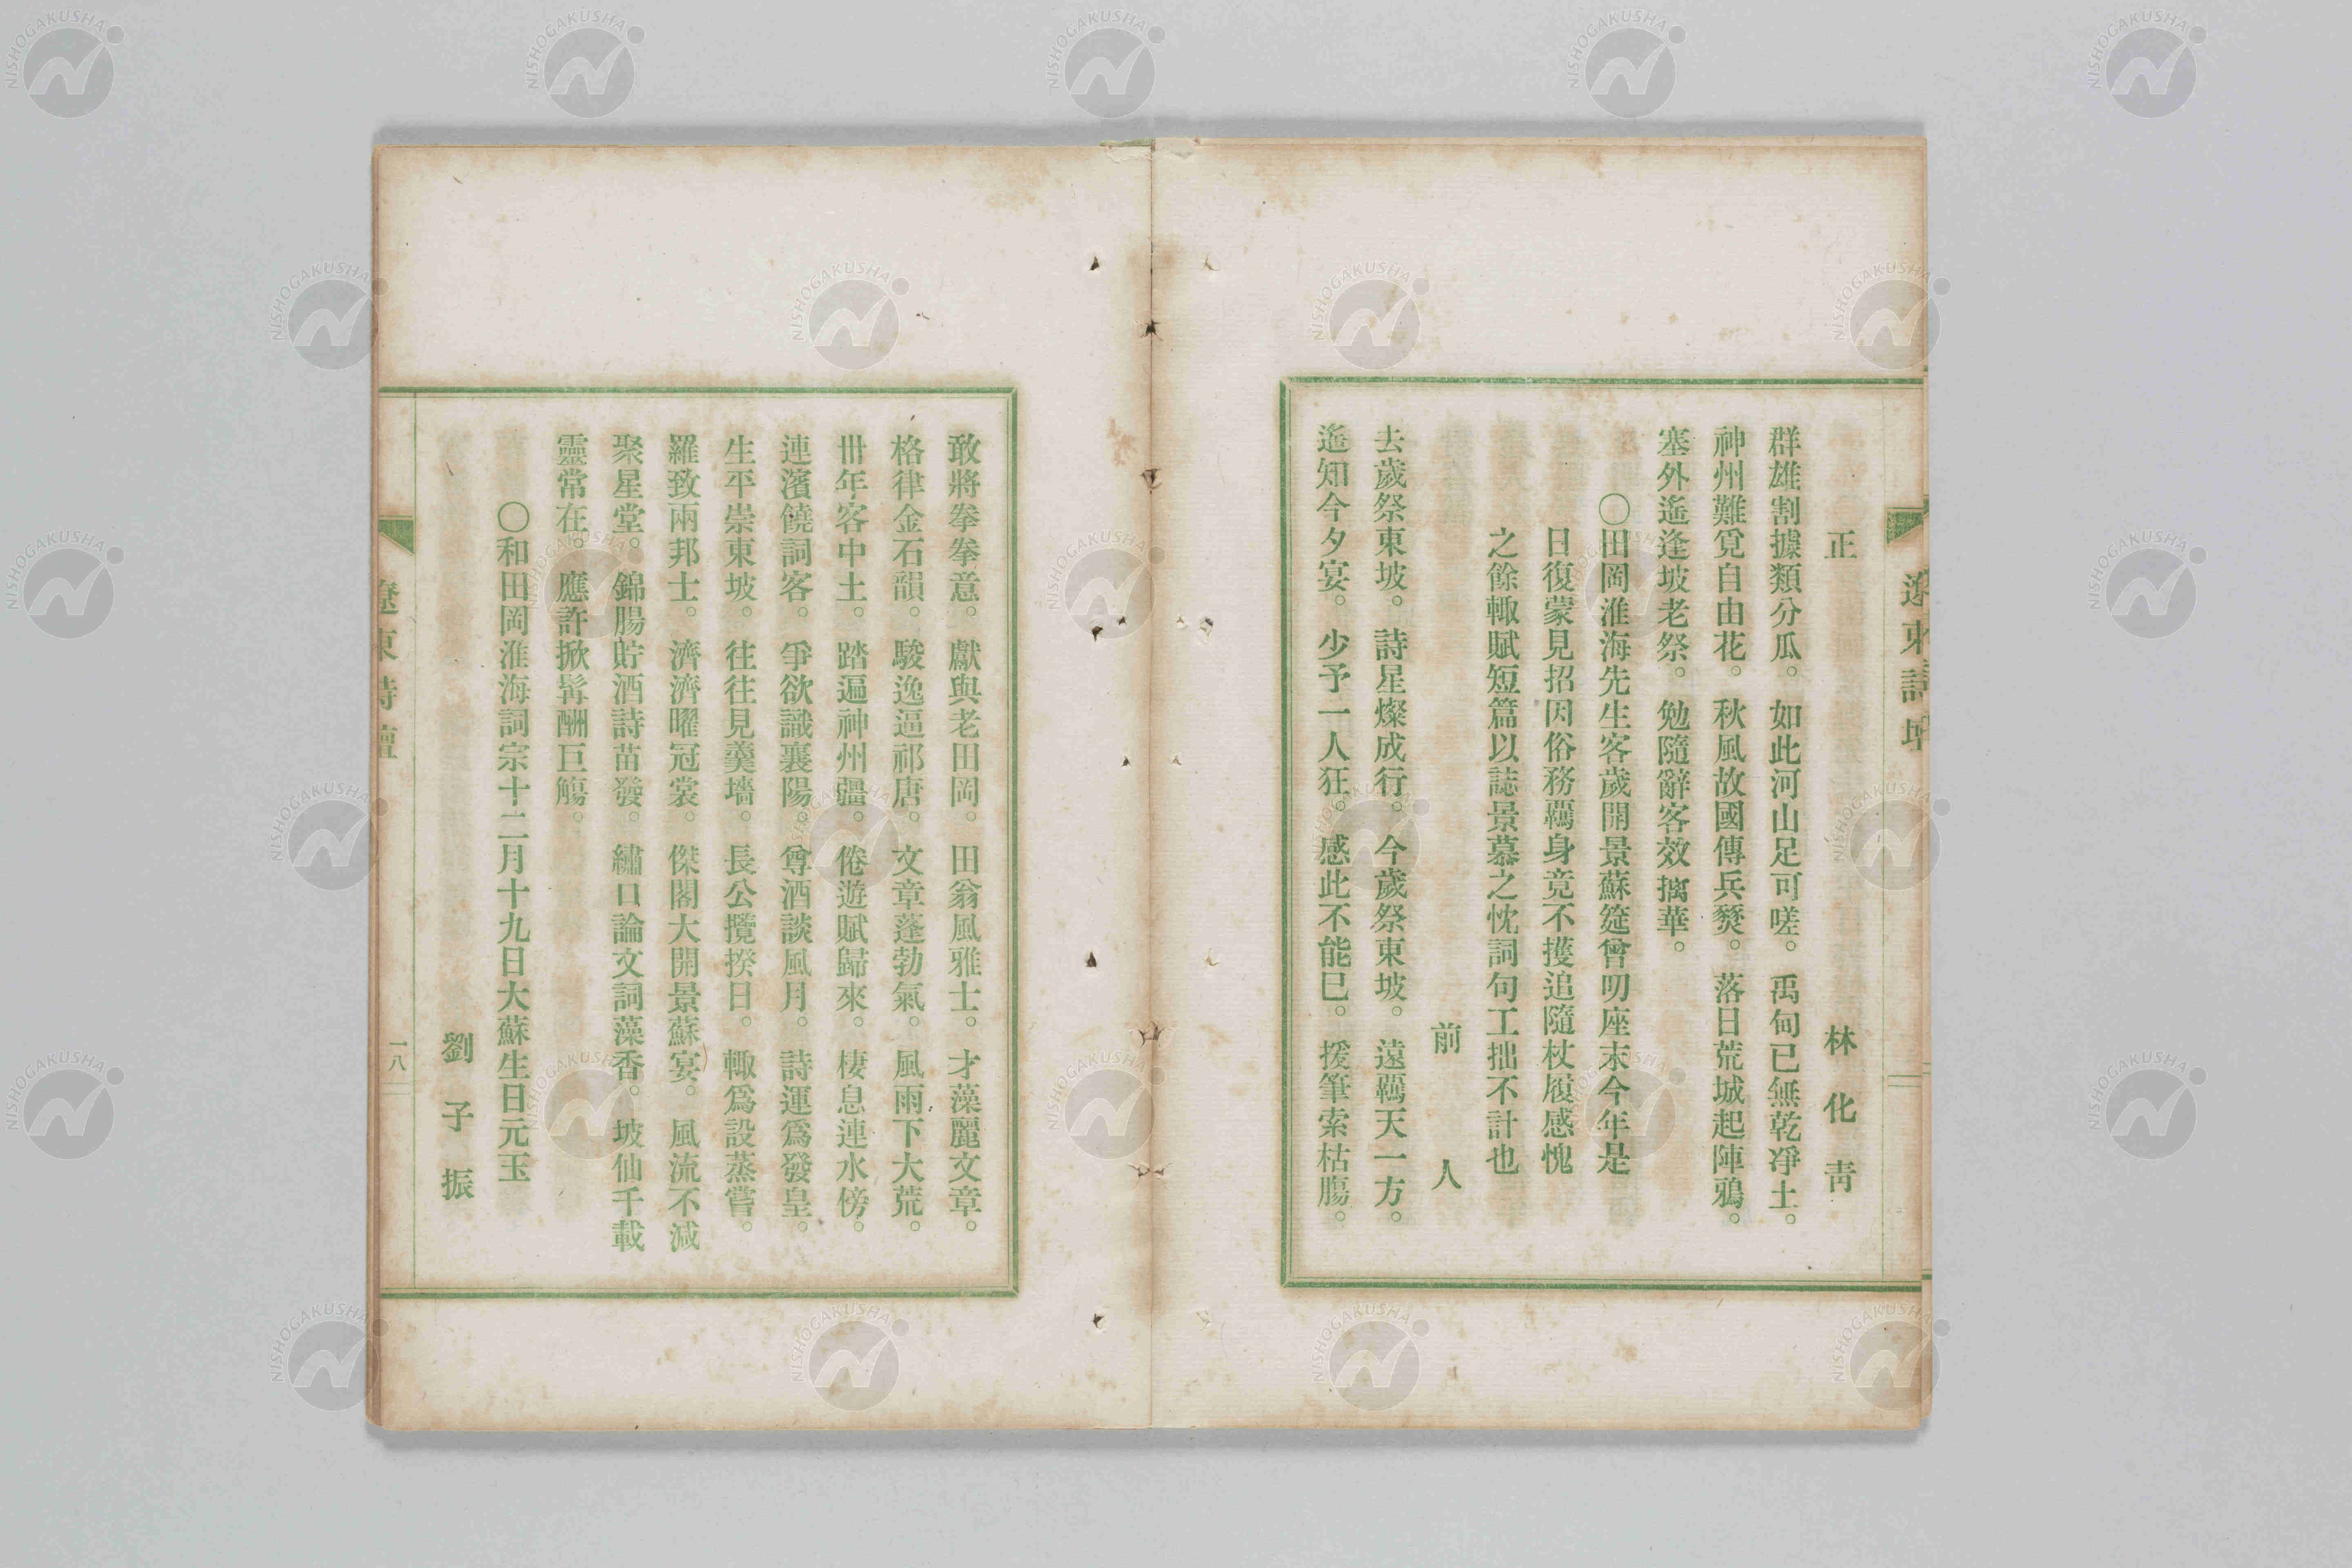 遼東詩壇
正　林化靑
群雄割據類分瓜。如此河山足可嗟。禹甸已無乾凈土。
神州難覓自由花。秋風故國傳兵燹。落日荒城起陣鴉。
塞外遙逢坡老祭。勉隨辭客效摛華。
〇田岡淮海先生客歲開景蘇筵曾叨座末今年是
日復蒙見招因俗務羈身竟不擭追隨杖履感愧
之餘輙賦短篇以誌景慕之忱詞句工拙不計也
前人
去歲祭東坡。詩星燦成行。今歲祭東坡。遠羈天一方。
遙知今夕宴。少予一人狂。感此不能巳。援筆索枯膓。
敢將拳拳意。獻與老田岡。田翁風雅士。才藻麗文章。
格律金石韻。駿逸逼祁唐。文章蓬勃氣。風雨下大荒。
卅年客中土。踏遍神州疆。倦遊賦歸來。棲息連水傍。
連濱饒詞客。爭欲識襄陽。尊酒談風月。詩運爲發皇。
生平崇東坡。往往見羹墻。長公攬揆日。輙爲設蒸嘗。
羅致兩邦士。濟濟曜冠裳。傑閣大開景蘇宴。風流不減
聚星堂。錦腸貯酒詩苗發。繡口論文詞藻香。坡仙千載
靈常在。應許掀髯酬巨觴。
〇和田岡淮海詞宗十二月十九日大蘇生日元玉
劉子振
遼東詩壇
一八
NISHOGAKUSHA